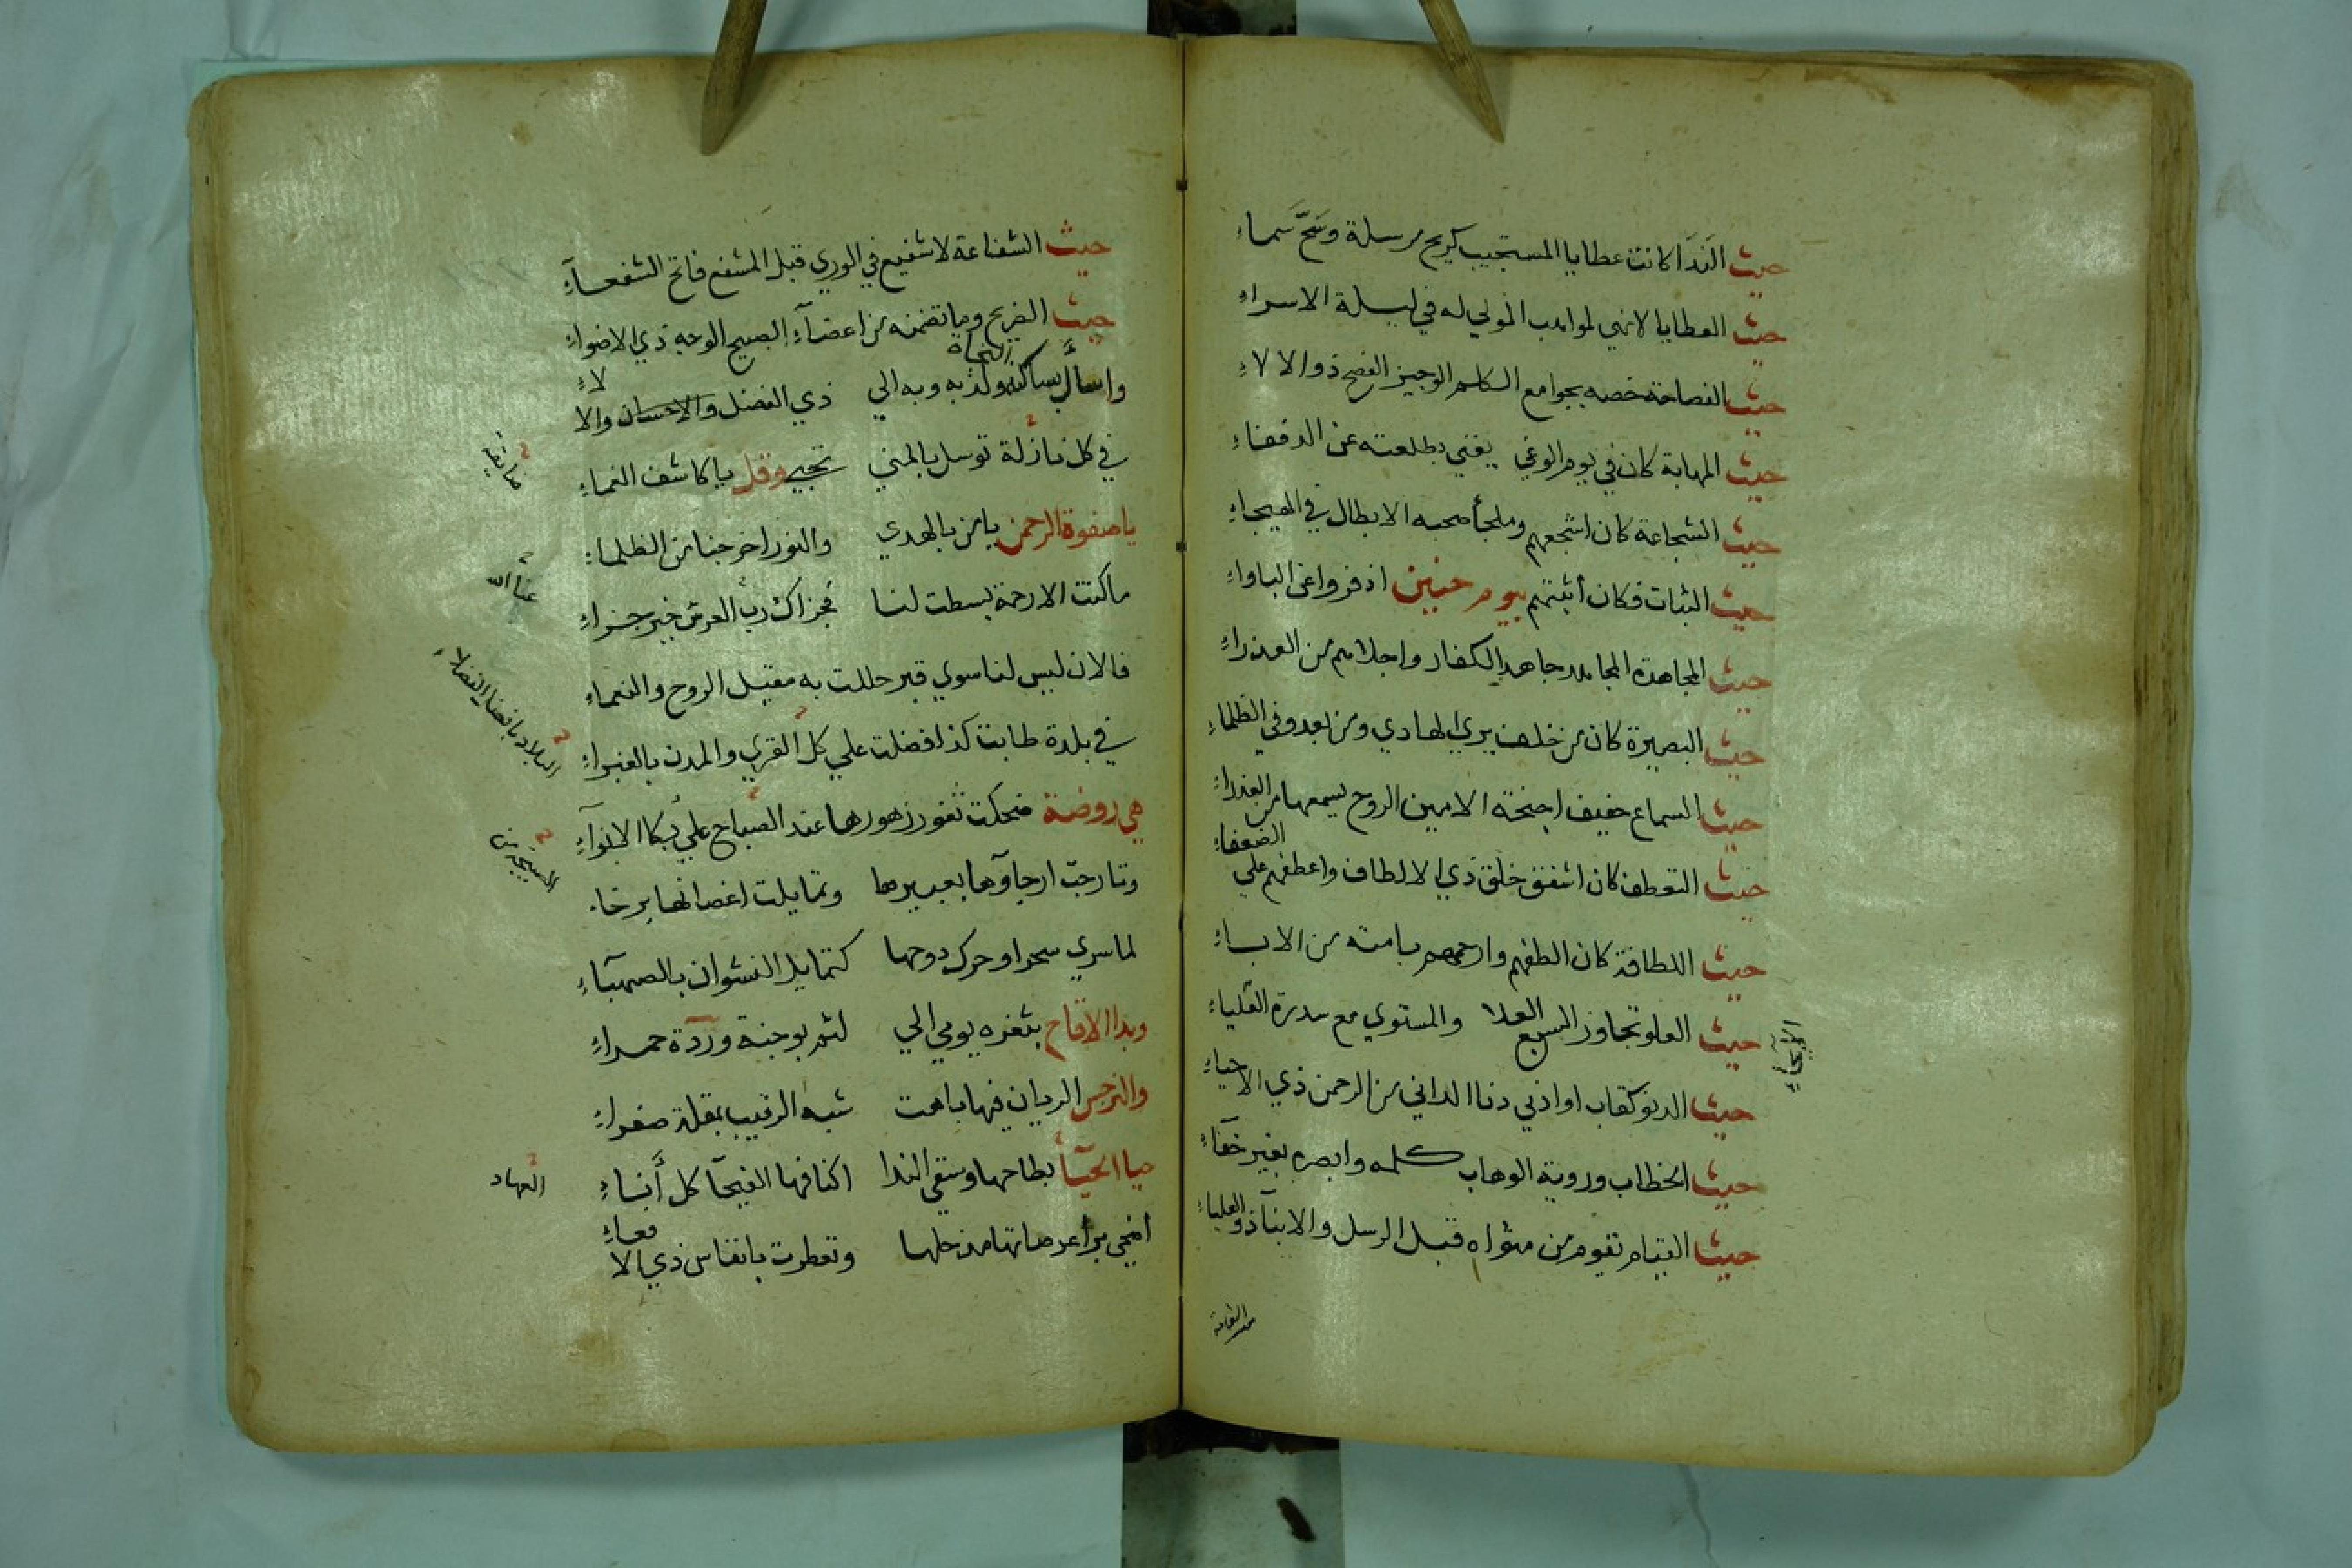 حيث الندا كانت عطايا المستجيب كريح مرسلة وسح سماء
حيث العطايا لانهي لمواهب المولي له في ليلة الاسراء
حيث الفصاحة خصه بجوامع الكلم الوجيز الفصح ذو الالاء
حيث المهابة كان في يوم الوغي يغني بطلعته عن الدفعاء
حيث الشجاعة كان اشجعهم وملجأ صحبه الابطال في الهيجاء
حيث الثبات فكان أثبتهم بيوم حنين اذ فروا عن الباواء
حيث المجاهدة المجاهد جاهد الكفار واجلاهم من العذراء
حيث البصيرة كان من خلف يري الهادي ومن يعدو في الظلماء
حيث السماع حفيف اجنحة الامين الروح يسمعها من العذراء
حيث التعطف كان اشفق خلق ذي الالطاف واعطفهم علي الضعفاء
حيث اللطافة كان الطفهم وارحمهم بامته من الاباء
حيث العلو تجاوز السبع العلا والمستوي مع سدرة العلياء
حيث الدنو كقاب او ادني دنا الداني من الرحمن ذي الاحياء
حيث الخطاب وروية الوهاب كلمه وابصره بغير خفاء
حيث القيام تقوم من مثواه قبل الرسل والانبآ ذو العلياء
حيث الشفاعة لا شفيع في الوري قبل المشفع فاتح الشفعآء
حيث الضريح وما تضمنه من اعضآء الصبيح الوجه ذي الاضواء
واسأل بساكنه النجاة ولذ به وبه الي ذي الفضل والاحسان والالاء
في كل نازلة توسل بالمني تجبي وقل يا كاشف الغماء
يا صفوة الرحمن يا من بالهدي والنور اخرجنا من الظلماء
ما كنت الا رحمة بسطت لنا فجزاك رب العرش خير جزاء
عنا الله
فالان ليس لنا سوي قبر حللت به مقيل الروح والنعماء
في بلدة طابت كذا فضلت علي كل القري والمدن بالغبراء
البلاد بافضا الفضلاء
هي روضة ضحكت ثغور زهورها عند الصباح علي بكا الانوآء
وتارجت ارجاؤها بعبيرها وتمايلت اغصانها برخاء
لما سري سحرا وحرك دوحها كتمايل النشوان بالصهبآء
وبدا الاقاح بثغره يومي الي لثم بوجنة وردة حمراء
والنرجس الريان فيها باهت شبه الرقيب بمقلة صفراء
حيا الحيا بطاحها وسقي الندا اكنافها الفيحا كل أنساء
العهاد
اضحي براعرصاتها مذ حلها وتعطرت بانفاس ذي الالاء